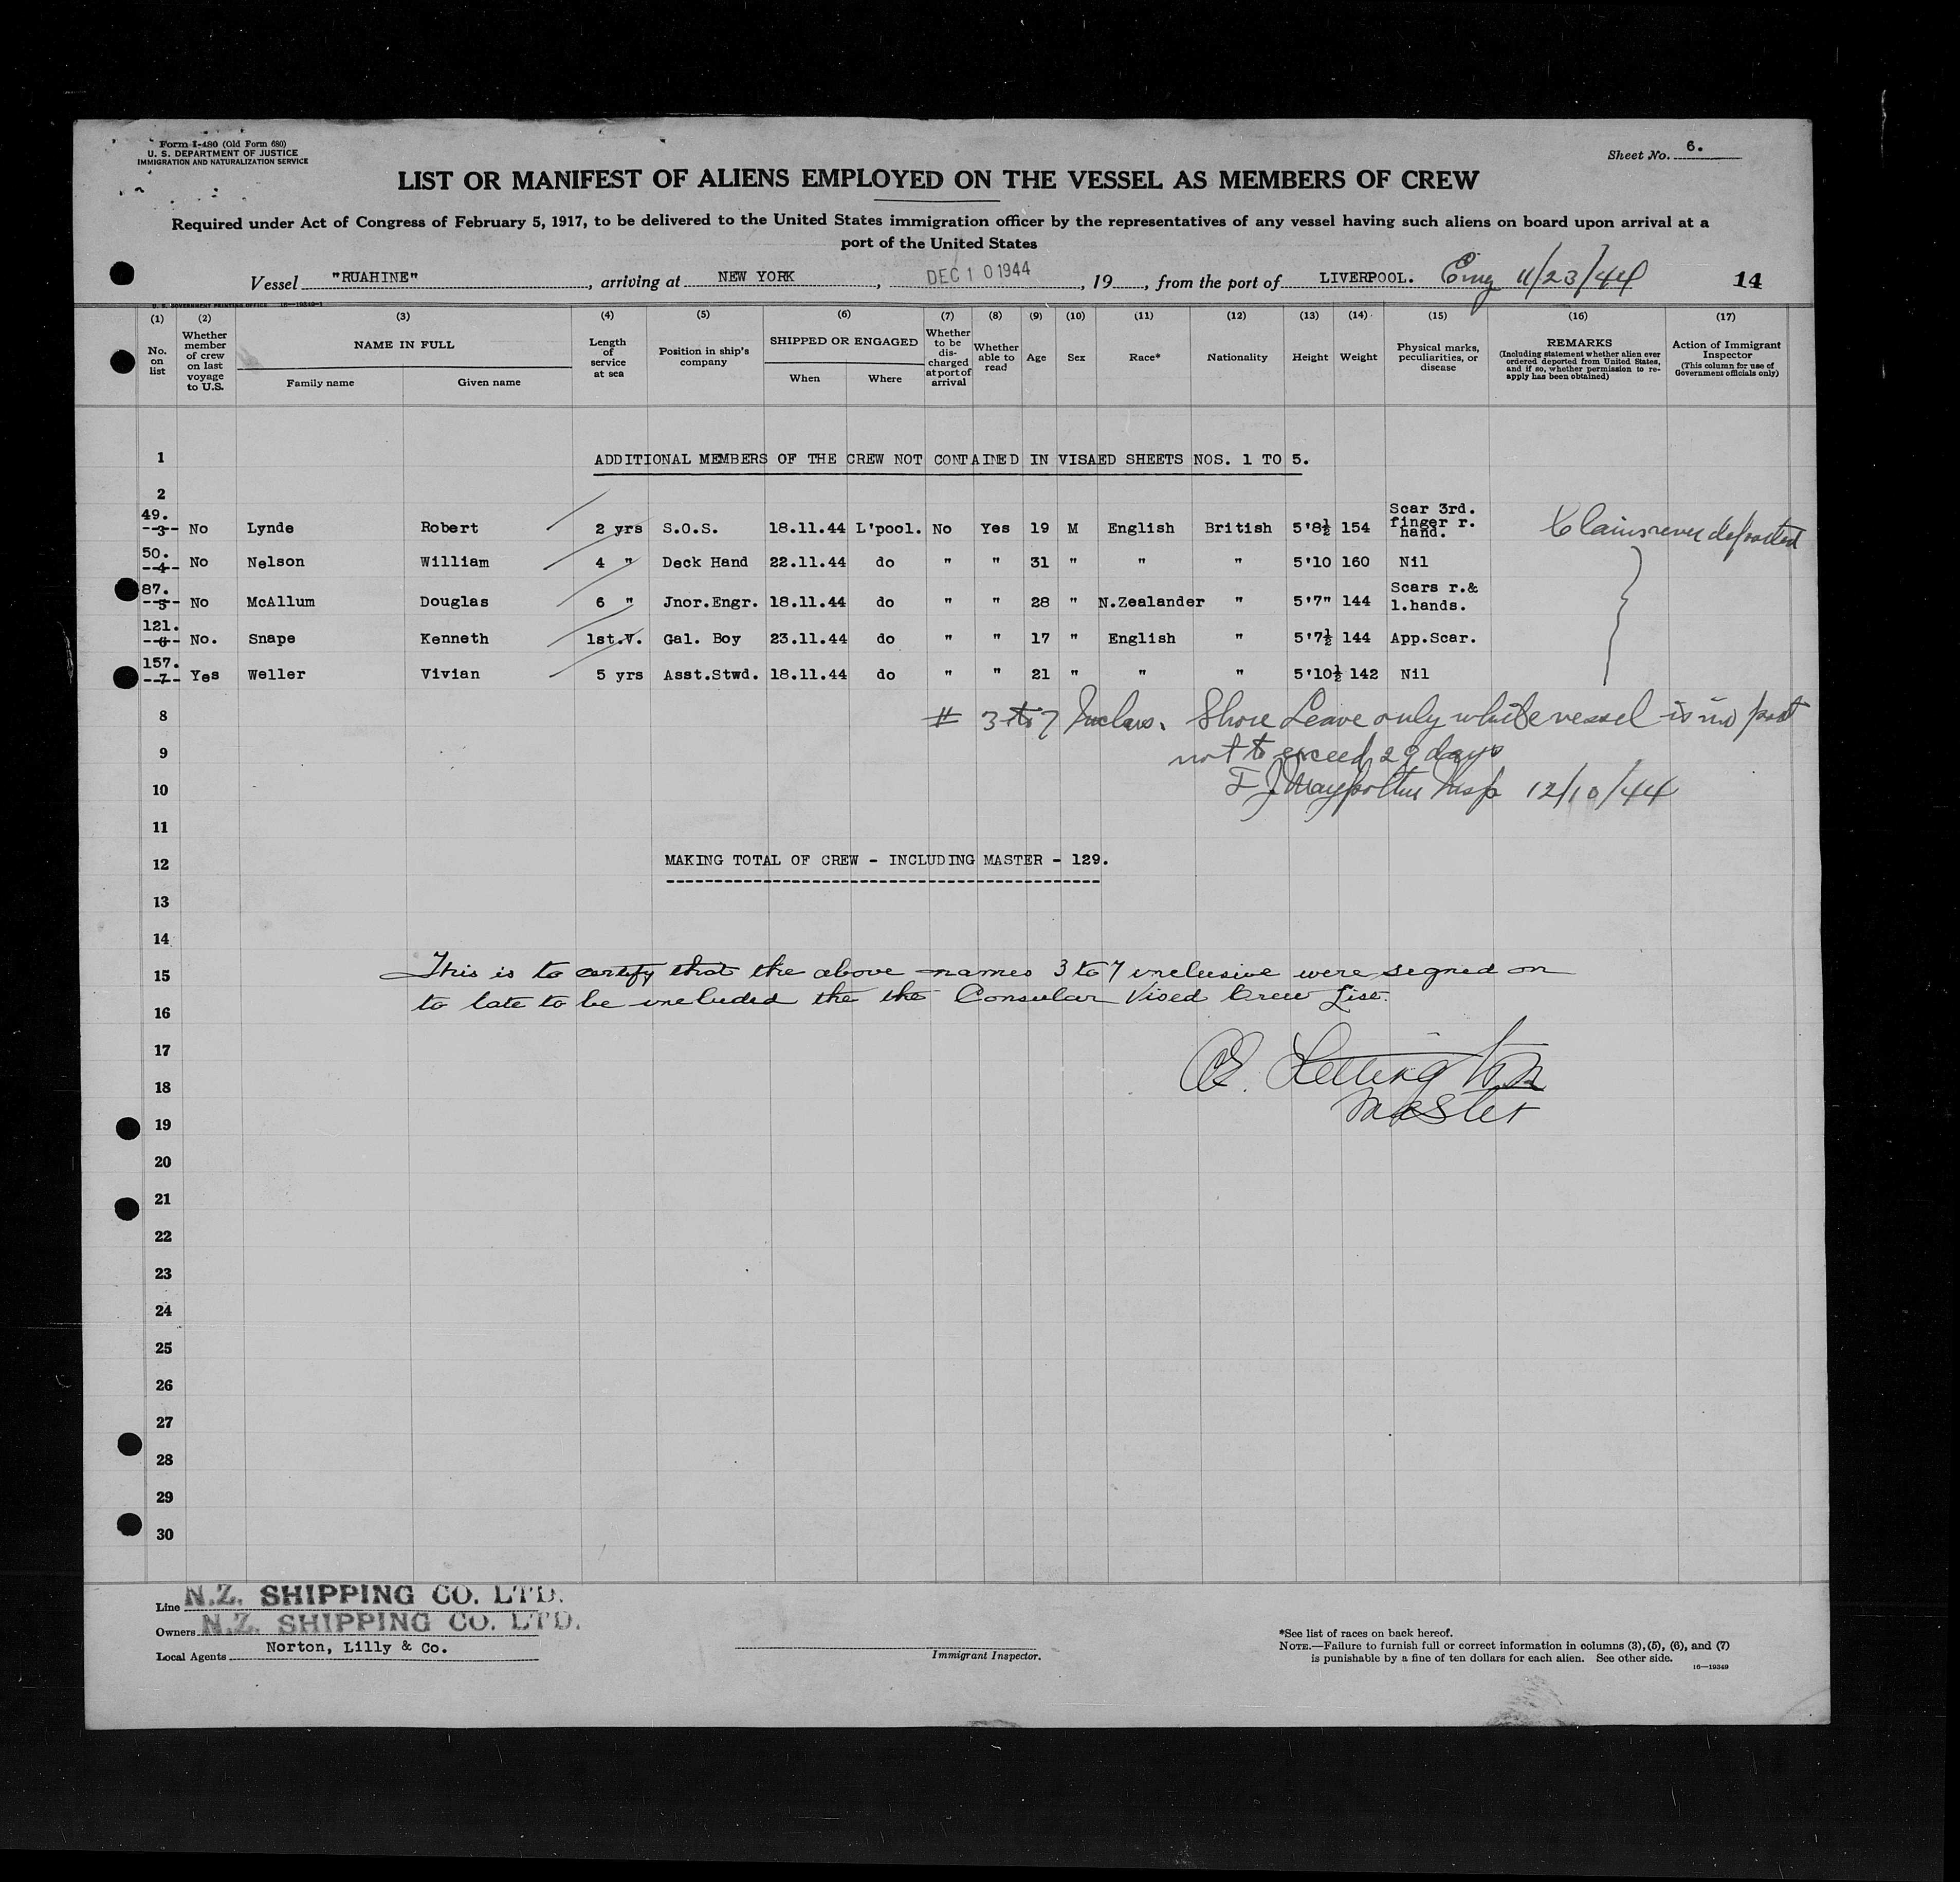 Form I-480 (Old Form 680)
U. S. DEPARTMENT OF JUSTICE
IMMIGRATION AND NATURALIZATION SERVICE
Sheet No. 6.
LIST OR MANIFEST OF ALIENS EMPLOYED ON THE VESSEL AS MEMBERS OF CREW
Required under Act of Congress of February 5, 1917, to be delivered to the United States immigration officer by the representatives of any vessel having such aliens on board upon arrival at a
port of the United States
Vessel "RUAHINE", arriving at NEW YORK, DEC 10 1944, 19, from the port of LIVERPOOL. 11/23/44 14
U. S. GOVERNMENT PRINTING OFFICE 16—19349-1
(1) (2) (3) (4) (5) (6) (7) (8) (9) (10) (11) (12) (13) (14) (15) (16) (17)
No. on list
Whether member of crew on last voyage to U.S.
NAME IN FULL
Family name Given name
Length of service at sea
Position in ship's company
SHIPPED OR ENGAGED
When Where
Whether to be discharged at port of arrival
Whether able to read
Age
Sex
Race*
Nationality
Height
Weight
Physical marks, peculiarities, or disease
REMARKS
(Including statement whether alien ever ordered deported from United States, and if so, whether permission to re-apply has been obtained)
Action of Immigrant Inspector
(This column for use of Government officials only)
1 ADDITIONAL MEMBERS OF THE CREW NOT CONTAINED IN VISAED SHEETS NOS. 1 TO 5.
2
49. 3 No Lynde Robert 2 yrs S.O.S. 18.11.44 L'pool. No Yes 19 M English British 5'8½ 154 Scar 3rd. finger r. hand. Claims never deported
50. 4 No Nelson William 4 " Deck Hand 22.11.44 do " " 31 " " " 5'10 160 Nil
87. 5 No McAllum Douglas 6 " Jnor.Engr. 18.11.44 do " " 28 " N.Zealander " 5'7" 144 Scars r.& l.hands.
121. 6 No. Snape Kenneth 1st.V. Gal. Boy 23.11.44 do " " 17 " English " 5'7½ 144 App.Scar.
157. 7 Yes Weller Vivian 5 yrs Asst.Stwd. 18.11.44 do " " 21 " " " 5'10½ 142 Nil
8 # 3 to 7 Inclus. Shore Leave only while vessel is in port
9 not to exceed 29 days
10 Insp 12/10/44
11
12 MAKING TOTAL OF CREW - INCLUDING MASTER - 129.
13
14
15 This is to certify that the above names 3 to 7 inclusive were signed on
16 to late to be included the the Consular Vised Crew List.
17
18
19 Master
20
21
22
23
24
25
26
27
28
29
30
Line N.Z. SHIPPING CO. LTD.
Owners N.Z. SHIPPING CO. LTD.
Local Agents Norton, Lilly & Co.
Immigrant Inspector.
*See list of races on back hereof.
NOTE.—Failure to furnish full or correct information in columns (3), (5), (6), and (7)
is punishable by a fine of ten dollars for each alien. See other side.
16—19349